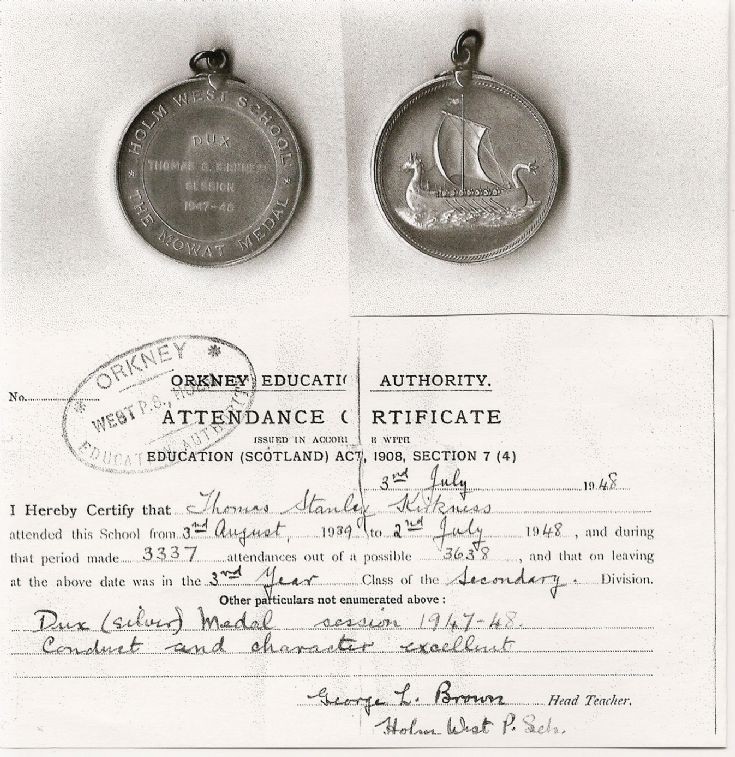 HOLM WEST SCHOOL
DUX
THOMAS S. KIRKNESS
SESSION
1947-48
THE MOWAT MEDAL
ORKNEY
WEST P.S.,
EDUCATION AUTHORITY
No.
ORKNEY EDUCATI AUTHORITY.
ATTENDANCE C RTIFICATE
ISSUED IN ACCOR E WITH
EDUCATION (SCOTLAND) ACT, 1908, SECTION 7 (4)
3rd July 1948
I Hereby Certify that Thomas Stanley Kirkness
attended this School from 3rd August, 1939 to 2nd July 1948, and during
that period made 3337 attendances out of a possible 3638, and that on leaving
at the above date was in the 3rd Year Class of the Secondary. Division.
Other particulars not enumerated above:
Dux (Silver) Medal session 1947-48.
Conduct and character excellent
George L. Brown Head Teacher.
Holm West P. Sch.